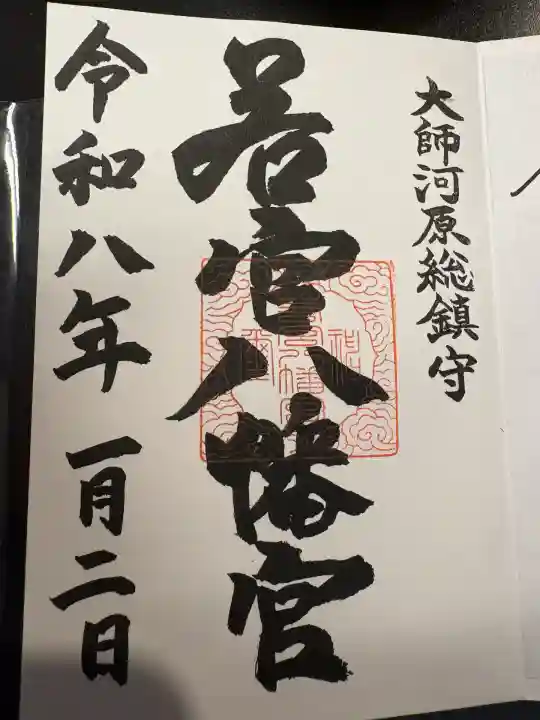 大師河原総鎮守
若宮八幡宮
令和八年 一月二日